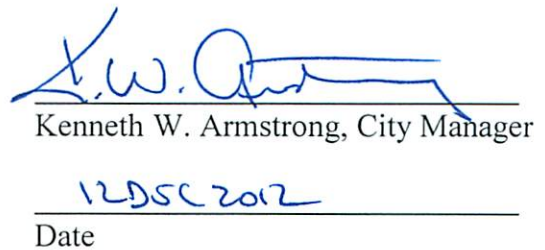 K.W. Armstrong
Kenneth W. Armstrong, City Manager
12DEC2012
Date